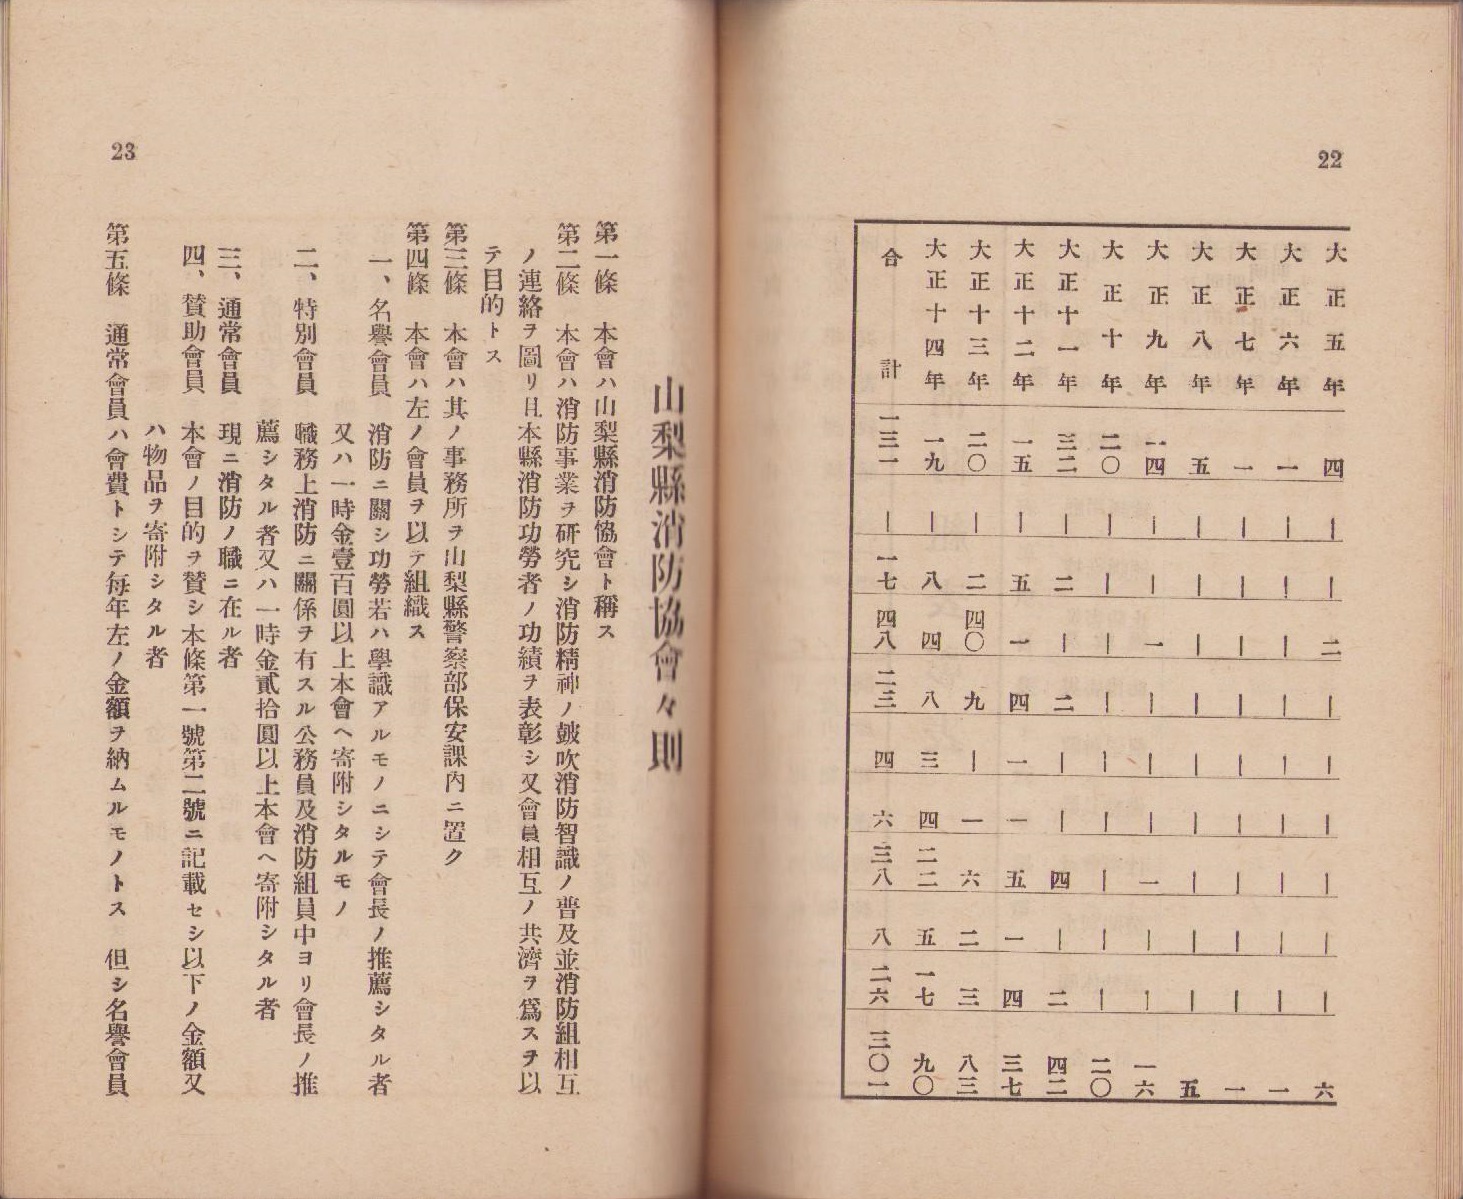 22
大正五年 四 | | 二 | | | | | | 六
大正六年 一 | | | | | | | | | 一
大正七年 一 | | | | | | | | | 一
大正八年 五 | | | | | | | | | 五
大正九年 一四 | | 一 | | | 一 | | 一六
大正十年 二〇 | | | | | | | | | 二〇
大正十一年 三二 | 二 | 二 | | 四 | 二 四二
大正十二年 一五 | 五 一 四 一 一 五 一 四 三七
大正十三年 二〇 | 二 四〇 九 | 一 六 二 三 八三
大正十四年 一九 | 八 四 八 三 四 二二 五 一七 九〇
合計 一三一 | 一七 四八 二三 四 六 三八 八 二六 三〇一
23
山梨縣消防協會々則
第一條 本會ハ山梨縣消防協會ト稱ス
第二條 本會ハ消防事業ヲ研究シ消防精神ノ皷吹消防智識ノ普及並消防組相互
ノ連絡ヲ圖リ且本縣消防功勞者ノ功績ヲ表彰シ又會員相互ノ共濟ヲ爲スヲ以
テ目的トス
第三條 本會ハ其ノ事務所ヲ山梨縣警察部保安課內ニ置ク
第四條 本會ハ左ノ會員ヲ以テ組織ス
一、名譽會員 消防ニ關シ功勞若ハ學識アルモノニシテ會長ノ推薦シタル者
又ハ一時金壹百圓以上本會ヘ寄附シタルモノ
二、特別會員 職務上消防ニ關係ヲ有スル公務員及消防組員中ヨリ會長ノ推
薦シタル者又ハ一時金貳拾圓以上本會ヘ寄附シタル者
三、通常會員 現ニ消防ノ職ニ在ル者
四、賛助會員 本會ノ目的ヲ賛シ本條第一號第二號ニ記載セシ以下ノ金額又
ハ物品ヲ寄附シタル者
第五條 通常會員ハ會費トシテ每年左ノ金額ヲ納ムルモノトス 但シ名譽會員